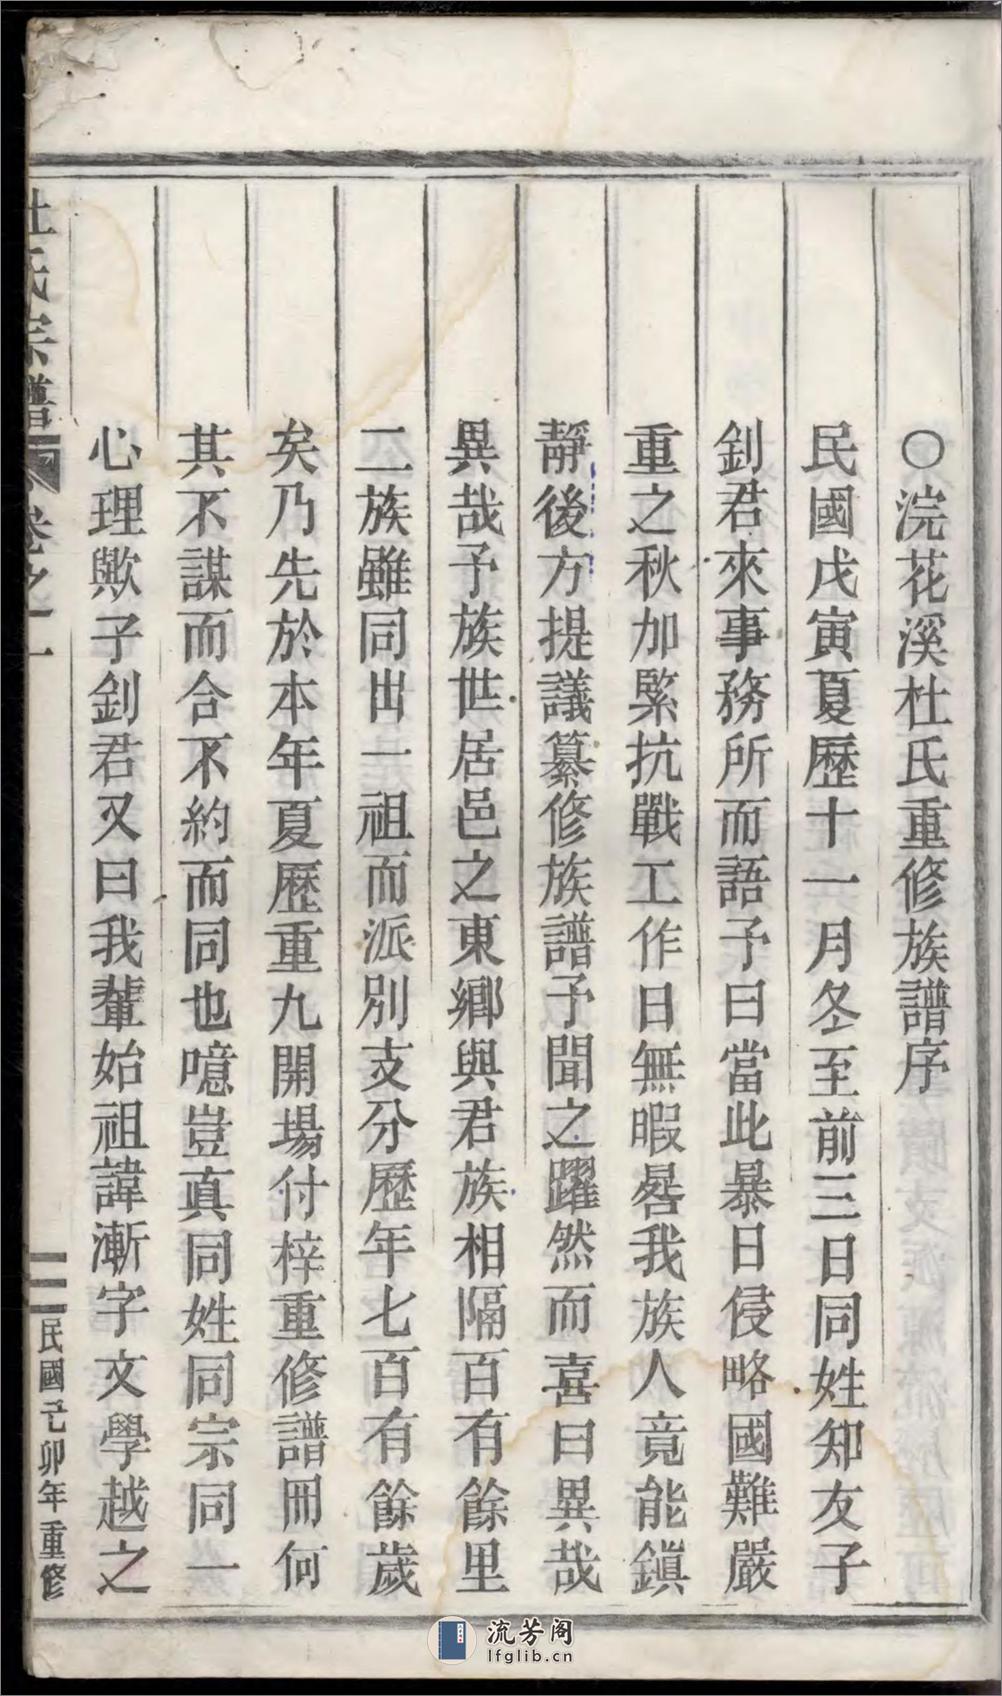 ○浣花溪杜氏重修族譜序
民國戊寅夏歷十一月冬至前三日同姓知友子
釗君來事務所而語予曰當此暴日侵略國難嚴
重之秋加緊抗戰工作日無暇晷我族人竟能鎮
靜後方提議纂修族譜予聞之躍然而喜曰異哉
異哉予族世居邑之東鄉與君族相隔百有餘里
二族雖同出一祖而派別支分歷年七百有餘歲
矣乃先於本年夏歷重九開場付梓重修譜冊何
其不謀而合不約而同也噫豈真同姓同宗同一
心理歟子釗君又曰我輩始祖諱漸字文學越之
杜氏宗譜 卷之一 二 民國己卯年重修
流芳阁
lfglib.cn